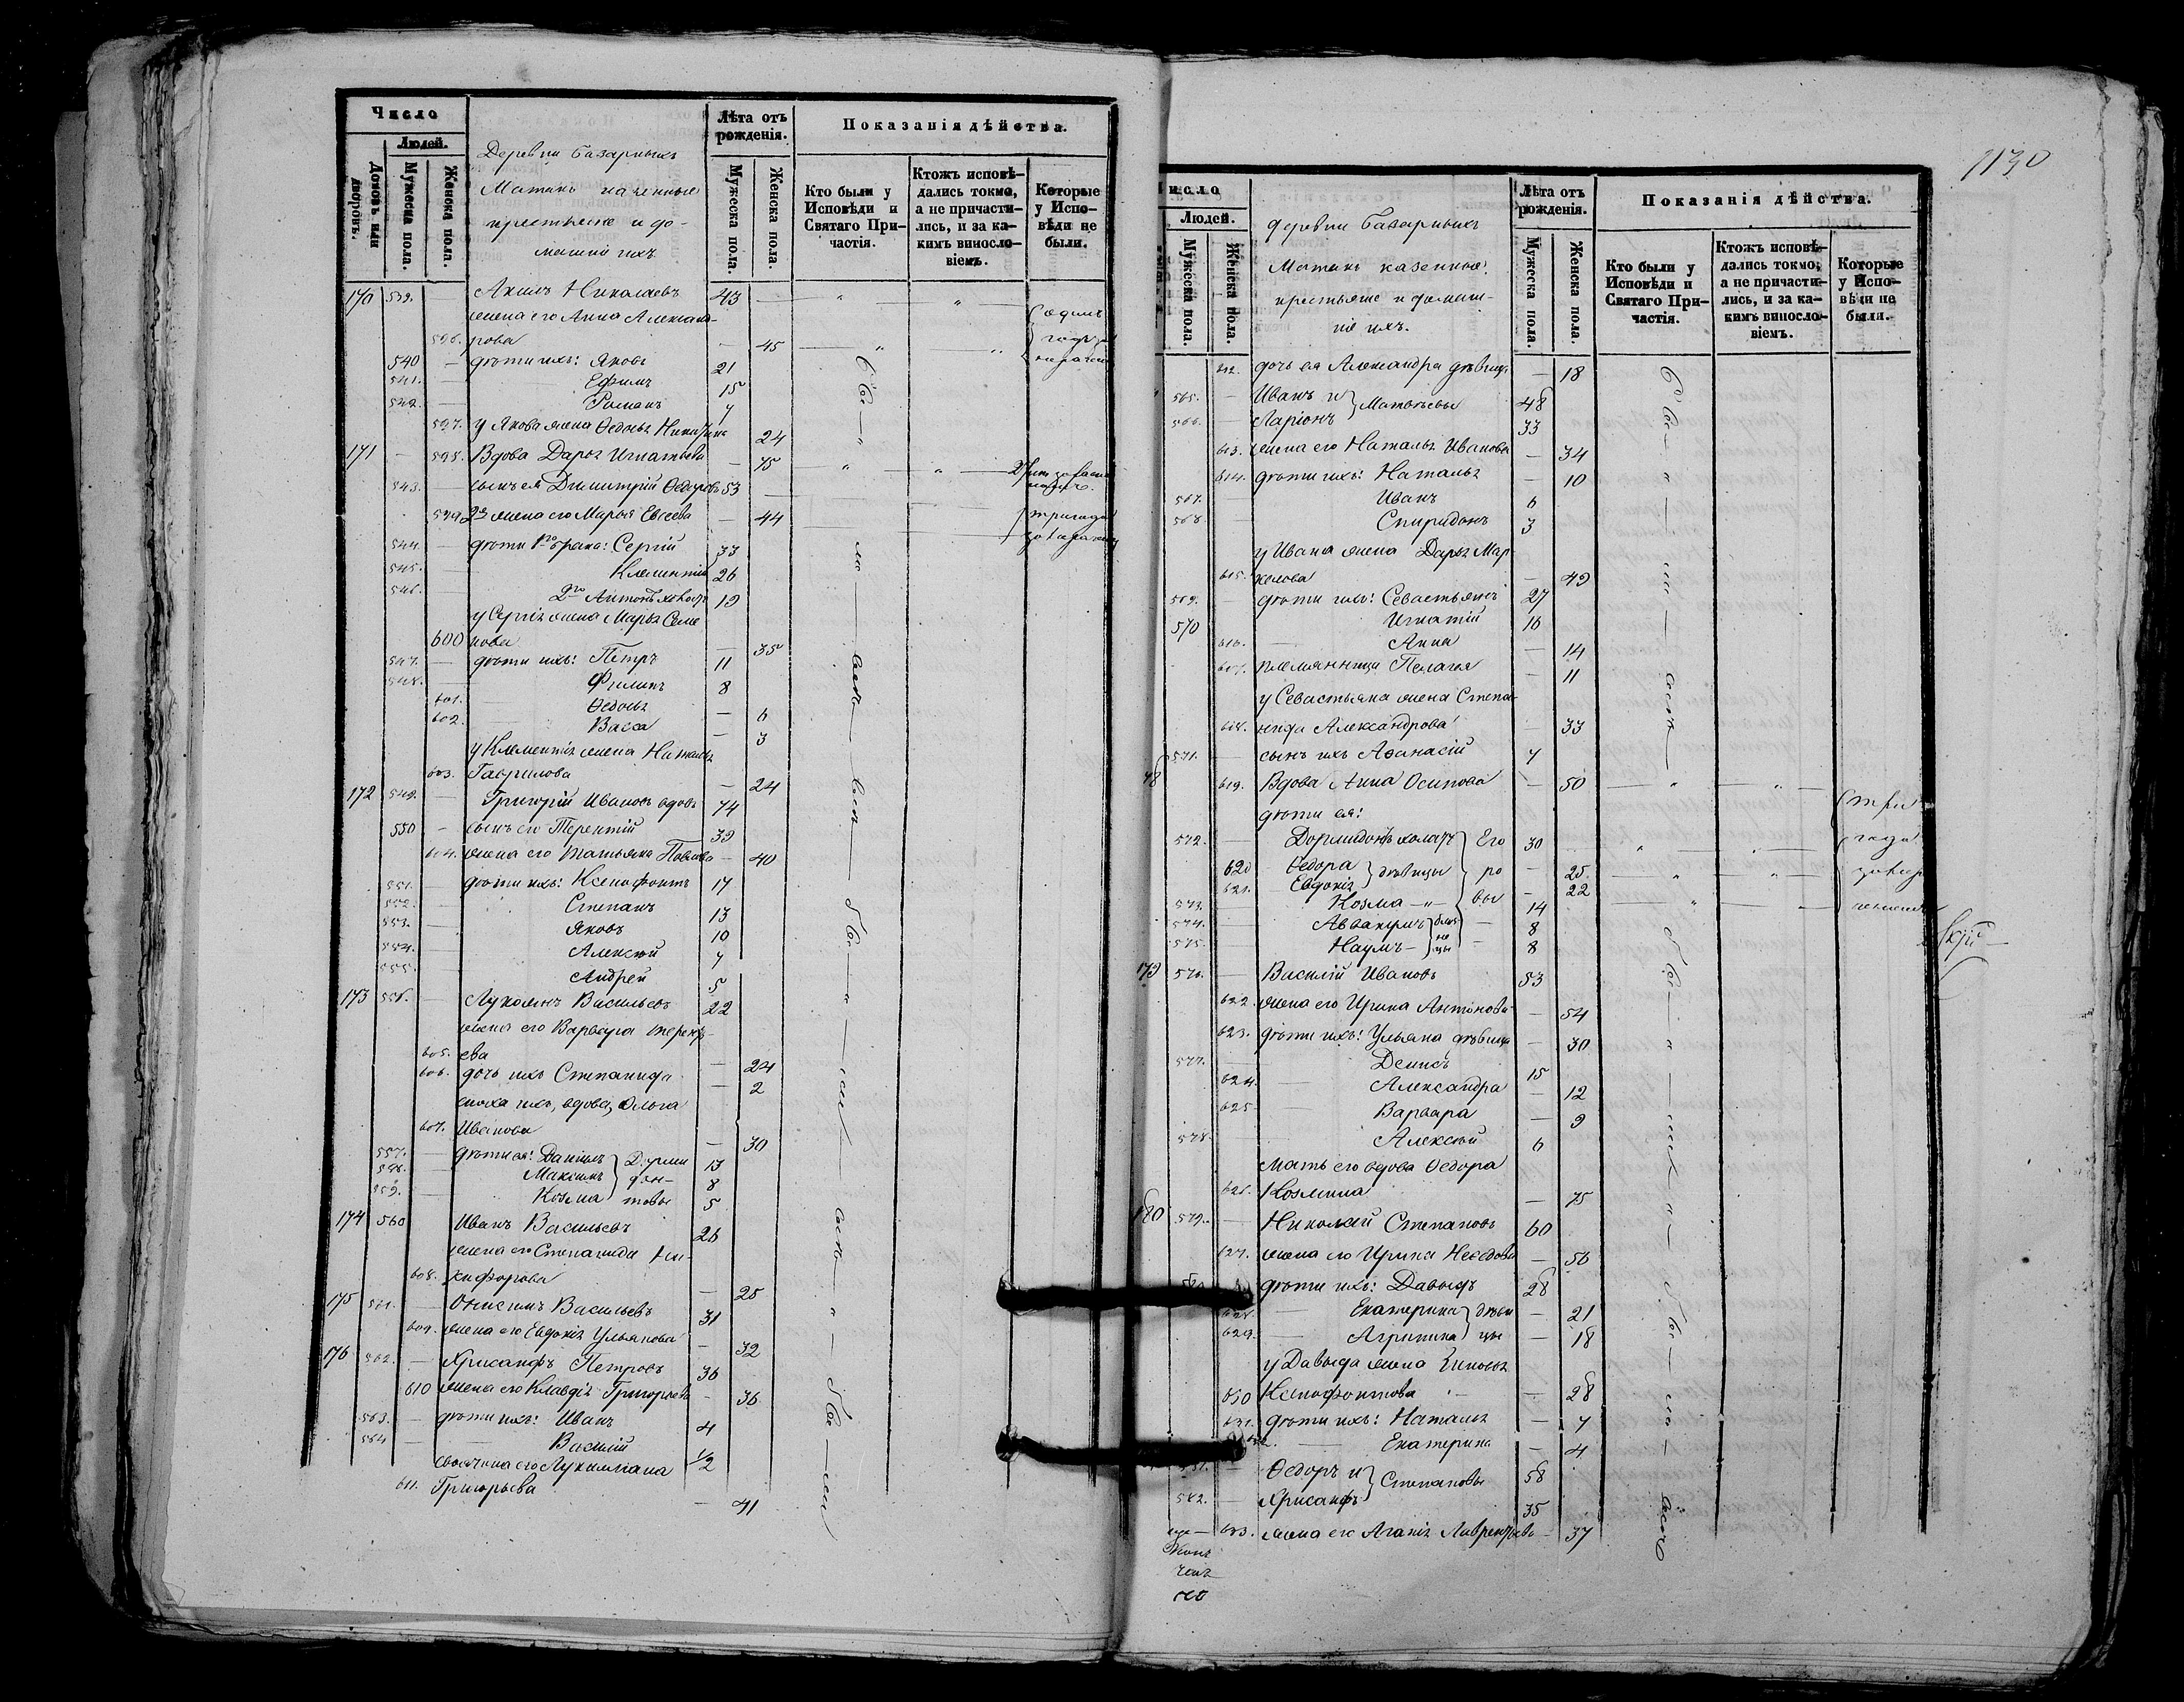 Число
Людей.
Домовъ или дворовъ.
Мужеска пола.
Женска пола.
Деревни Базарныхъ
Матакъ казенные
крестьяне и до-
машніе ихъ
Лѣта отъ рожденія.
Мужеска пола.
Женска пола.
Показанія дѣйства.
Кто были у Исповѣди и Святаго Причастія.
Ктожъ исповѣдались токмо, а не причастились, и за какимъ винословіемъ.
Которые у Исповѣди не были.
170 539. — Акимъ Николаевъ 43 —
жена его Анна Александ-
596. рова — 45
540 — дѣти ихъ: Яковъ 21
541. — Ефимъ 15
542. — Романъ 7
597. у Якова жена Ѳедосья Никитина 24
171 — 598. Вдова Дарья Игнатьева — 75
543. — сынъ ея Димитрій Ѳедоровъ 53
599 2я жена его Марья Евсеева — 44
544. — дѣти 1го брака: Сергій 33
545. — Климентій 26
546. — 2го Антонъ холостъ 19
у Сергія жена Марья Семе
600 нова — 35
547. — дѣти ихъ: Петръ 11
548. — Филипъ 8
601. Ѳедосья — 6
602. Васса — 3
у Климентія жена Наталья
603. Гаврилова — 24
172 549. — Григорій Ивановъ вдовъ 74
550 — сынъ его Терентій 39
604. жена его Татьяна Павлова — 40
551. — дѣти ихъ: Ксенофонтъ 17
552. — Степанъ 13
553. — Яковъ 10
554. — Алексѣй 7
555. — Андрей 5
173 556. — Лукоянъ Васильевъ 22
жена его Варвара Терентье-
605. ева — 24
606. дочь ихъ Степанида — 2
сноха ихъ, вдова, Ольга
607. Иванова — 30
557. — дѣти ея: Даніилъ 13
558. — Максимъ 8
559. — Козма 5
Дорми
дон-
товы
174 560 Иванъ Васильевъ 26
жена его Степанида Ни-
608. кифорова — 25
175 561. — Онисимъ Васильевъ 31
609. жена его Евдокія Ульянова — 32
176 562. — Хрисанфъ Петровъ 36
610 жена его Клавдія Григорьева — 36
563. — дѣти ихъ: Иванъ 4
564 — Василій 1/2
свояченица его Лукиліана
611. Григорьева — 41
1130
Число
Людей.
Мужеска пола.
Женска пола.
деревни Базарныхъ
Матакъ казенные
крестьяне и домаш-
ніе ихъ.
Лѣта отъ рожденія.
Мужеска пола.
Женска пола.
Показанія дѣйства.
Кто были у Исповѣди и Святаго Причастія.
Ктожъ исповѣдались токмо, а не причастились, и за какимъ винословіемъ.
Которые у Исповѣди не были.
612. дочь ея Александра дѣвица — 18
565. — Иванъ и 48
566. — Ларіонъ 33
Матвѣевы
613. жена его Наталья Иванова — 34
614. дѣти ихъ: Наталья — 10
567. Иванъ 6
568. — Спиридонъ 3
у Ивана жена Дарья Мар
615. келова — 49
569. — дѣти ихъ: Севастьянъ 27
570 Игнатій 16
616. — Анна — 14
617. племянница Пелагея — 11
у Севастьяна жена Степа
618. нида Александрова — 33
571. — сынъ ихъ Аѳанасій 7
619. Вдова Анна Осипова — 50
дѣти ея:
572. — Дормидонтъ холостъ 30
620 Ѳедора — 25
621. Евдокія — 22
дѣвицы
573. Козма 14
574. — Аввакумъ 8
575. — Наумъ 8
Его
ро
вы
близ
не
цы
три
года
179 576. — Василій Ивановъ 53
622. жена его Ирина Антонова — 54
623. дѣти ихъ: Ульяна дѣвица — 30
577. — Денисъ 15
624. — Александра — 12
625 — Варвара — 9
578. — Алексѣй 6
мать его вдова Ѳедора
626. Козмина — 75
180 579. — Николай Степановъ 60
627. жена его Ирина Меѳодьева — 56
580 дѣти ихъ: Давыдъ 28
628. — Екатерина — 21
629. — Агрипина — 18
дѣви
цы
у Давыда жена Зиновья
630 Ксенофонтова — 28
631. дѣти ихъ: Наталья — 7
632. — Екатерина — 4
581. — Ѳедоръ и 58
582. — Хрисанфъ 35
Степановы
633. жена его Агапія Лаврентьева — 37